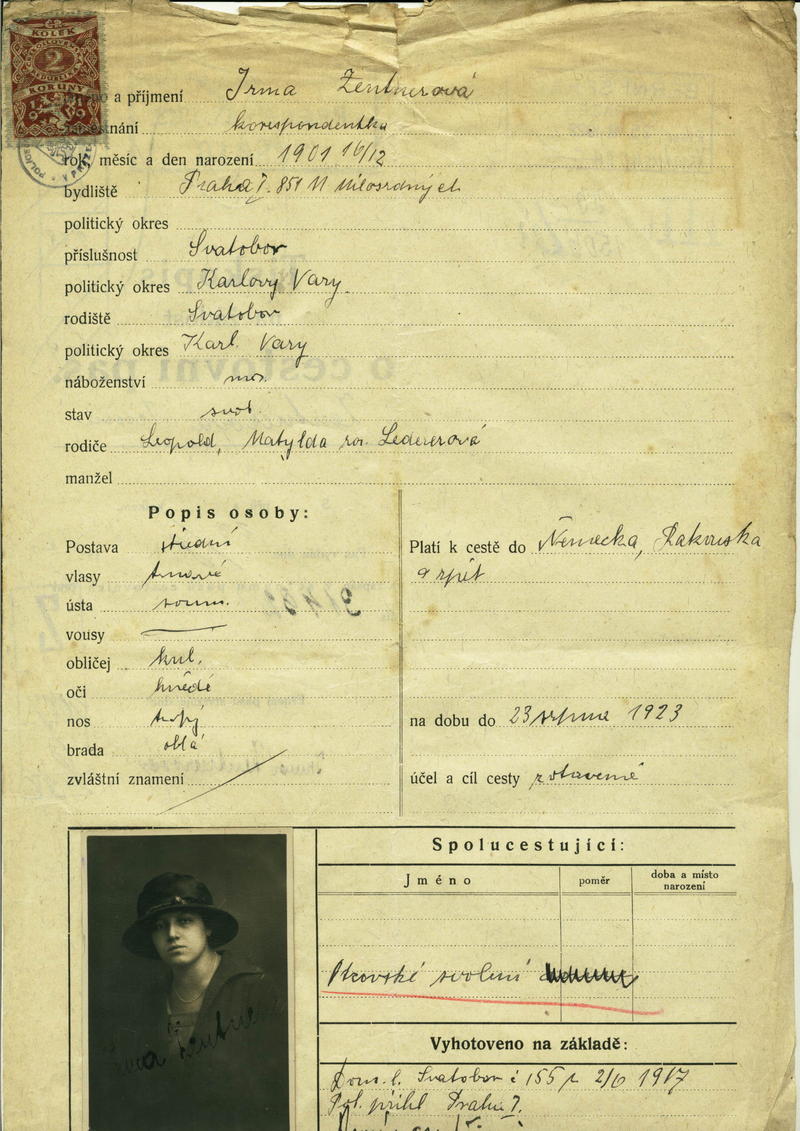 KOLEK
2
KORUNY
a příjmení Irma Zentnerová
korespondentka
rok, měsíc a den narození 1901 16/12
bydliště Praha I. 851 U Milosrdných
politický okres
příslušnost Svatobor
politický okres Karlovy Vary
rodiště Svatobor
politický okres Karl. Vary
náboženství mos.
stav svob.
rodiče Leopold, Matylda roz. Ledererová
manžel
Popis osoby:
Postava střední
vlasy tmavé
ústa soum.
vousy
obličej kul.
oči hnědé
nos tupý
brada oblá
zvláštní znamení
Platí k cestě do Německa, Rakouska
a zpět
na dobu do 23 srpna 1923
účel a cíl cesty zotavená
Spolucestující:
Jméno poměr doba a místo narození
Otcovské svolení
Irma Zentner
Vyhotoveno na základě:
Dom. l. Svatobor č 155 z 2/6 1917
Pol. přihl Praha I.